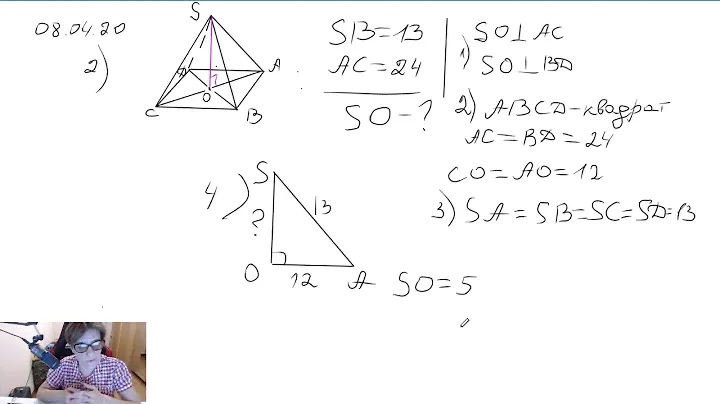 08.04.20
2)
S
D
A
O
C
B
SB=13
AC=24
SO-?
1) SO⊥AC
SO⊥BD
2) ABCD-квадрат
AC=BD=24
CO=AO=12
3) SA=SB=SC=SD=13
4)
S
?
13
O
12
A
SO=5